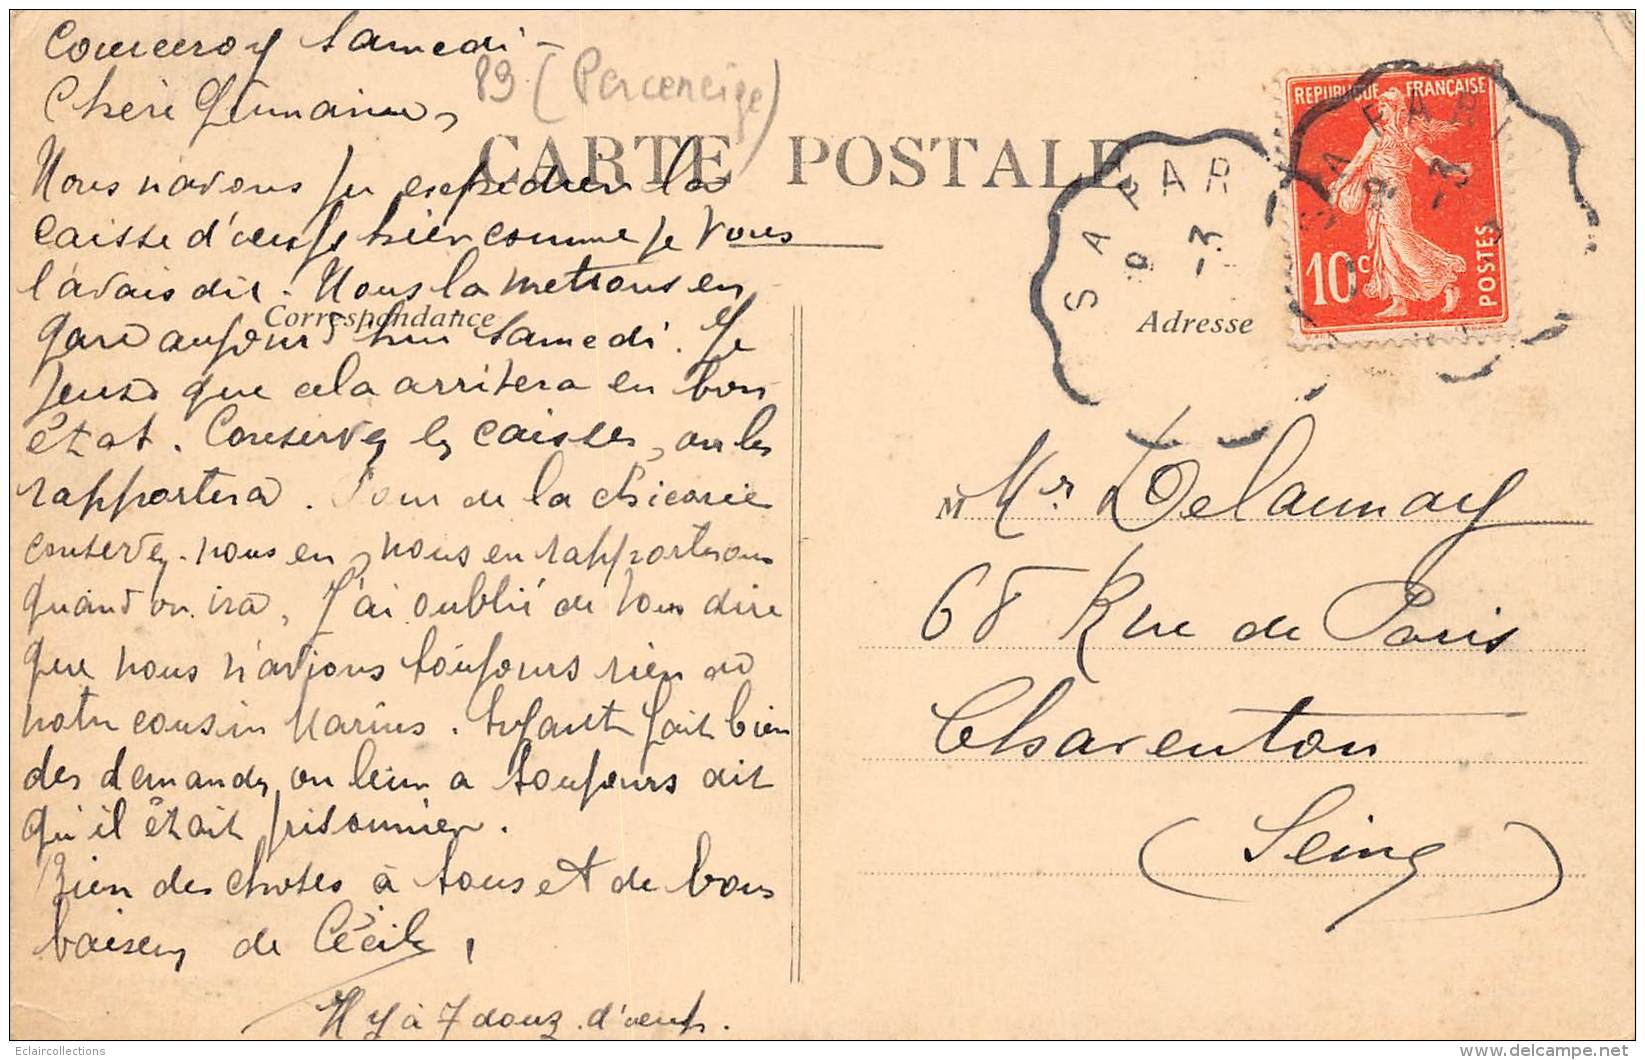 Courceroy Samedi -
89 (Perceneige)
Chère Germaine,
CARTE POSTALE
Nous n'avons pu expédier la
caisse d'œufs hier comme je vous
l'avais dit. Nous la mettrons en
Correspondance
gare aujourd'hui Samedi. Je
pense que cela arrivera en bon
état. Conservez les caisses, on les
rapportera. Pour de la chicorée
conservez-nous en, nous en rapporterons
quand on ira. J'ai oublié de vous dire
que nous n'avions toujours rien de
notre cousin Marius. fait bien
des demandes, on leur a toujours dit
qu'il était prisonnier.
Bien des choses à tous et de bons
baisers de Cécile,
Il y a 7 douz. d'œufs.
REPUBLIQUE FRANÇAISE
10c
POSTES
SA PAR
9 -3
SA PARI
9 -3
Adresse
M Mr Delaunay
68 Rue de Paris
Charenton
(Seine)
Eclaircollections
delcampe.net